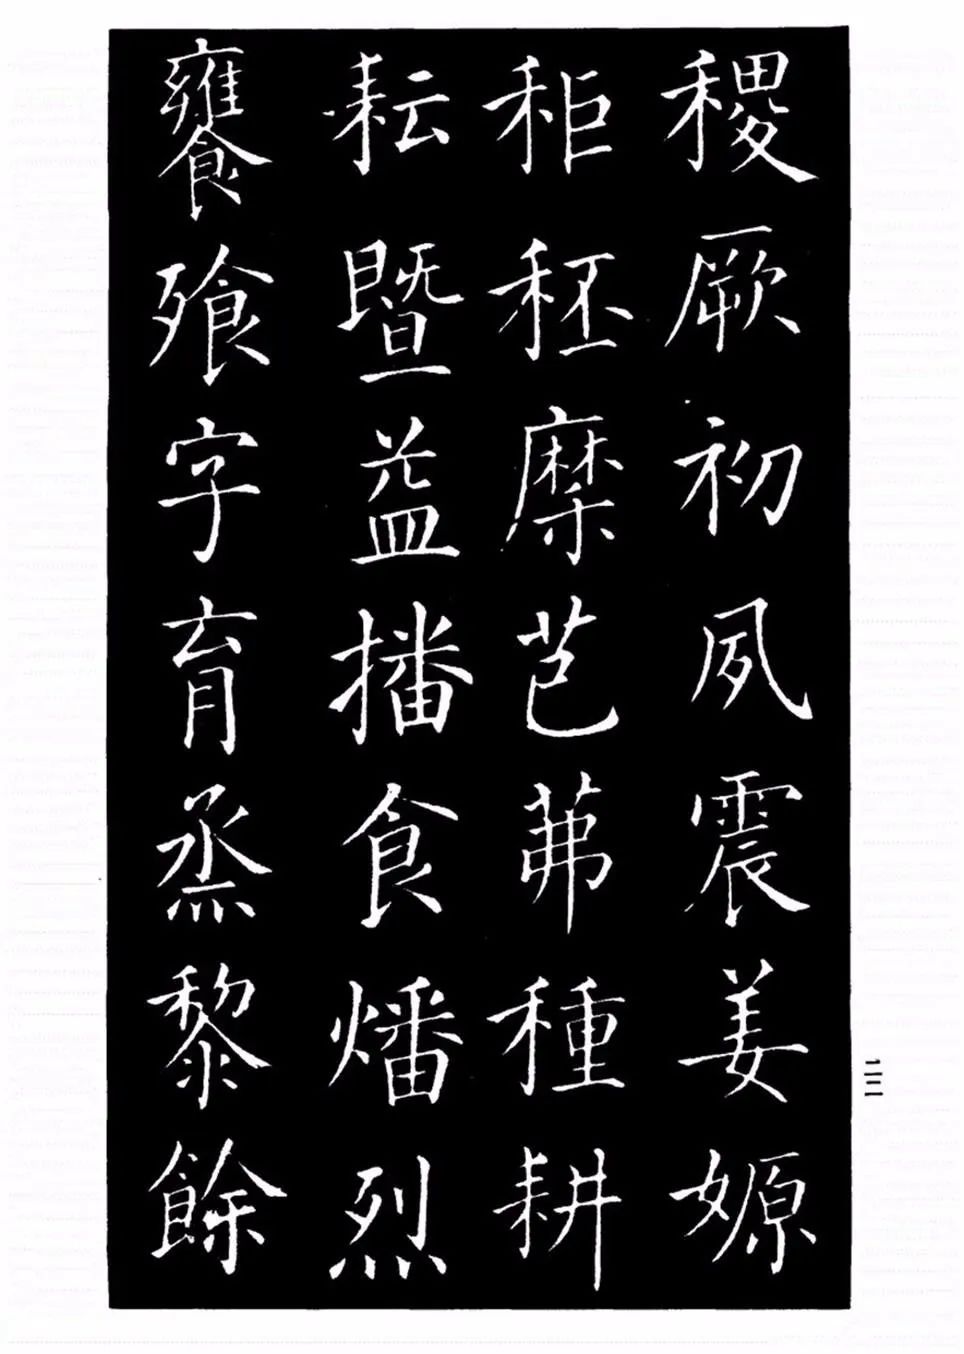 稷厥初夙震姜嫄
秬秠穈芑茀種耕
耘暨益播食燔烈
饔飧字育烝黎餘
二二